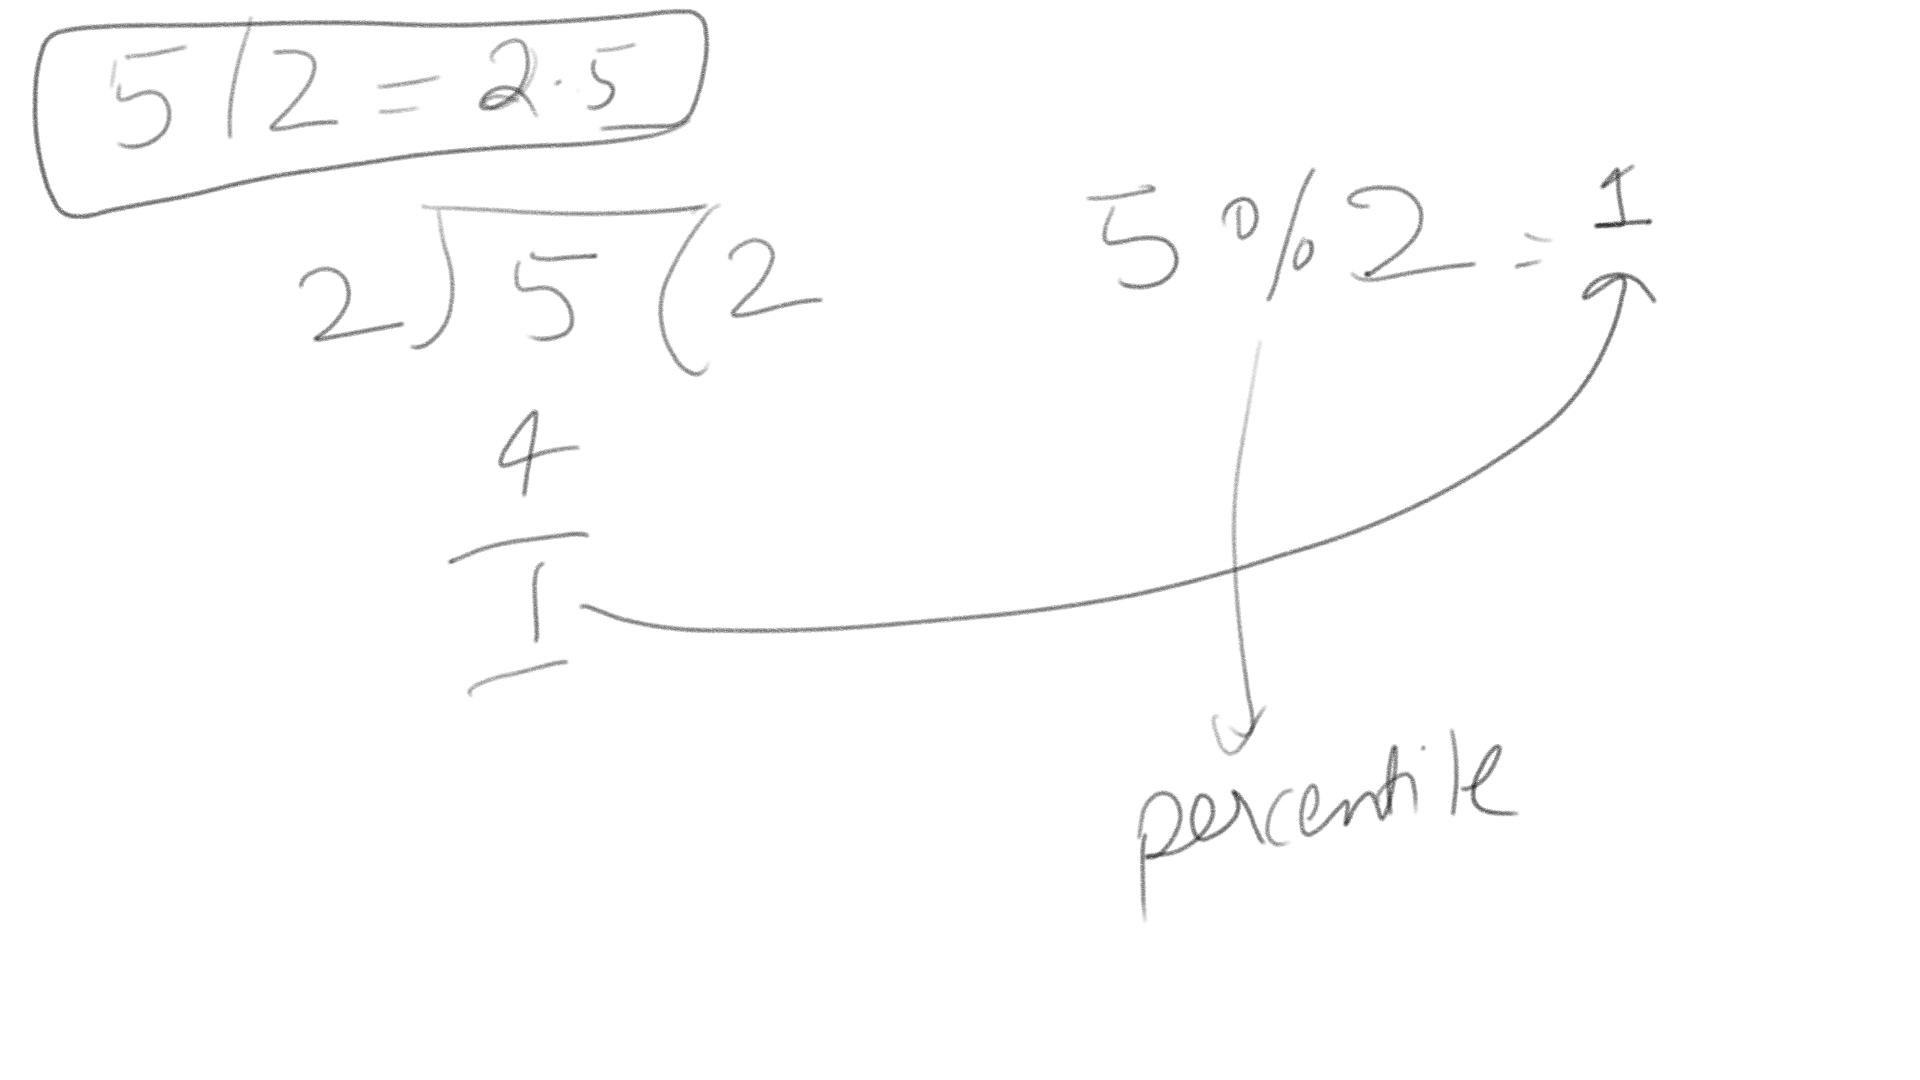 5/2 = 2.5
2)5(2
4
1
5%2 = 1
percentile